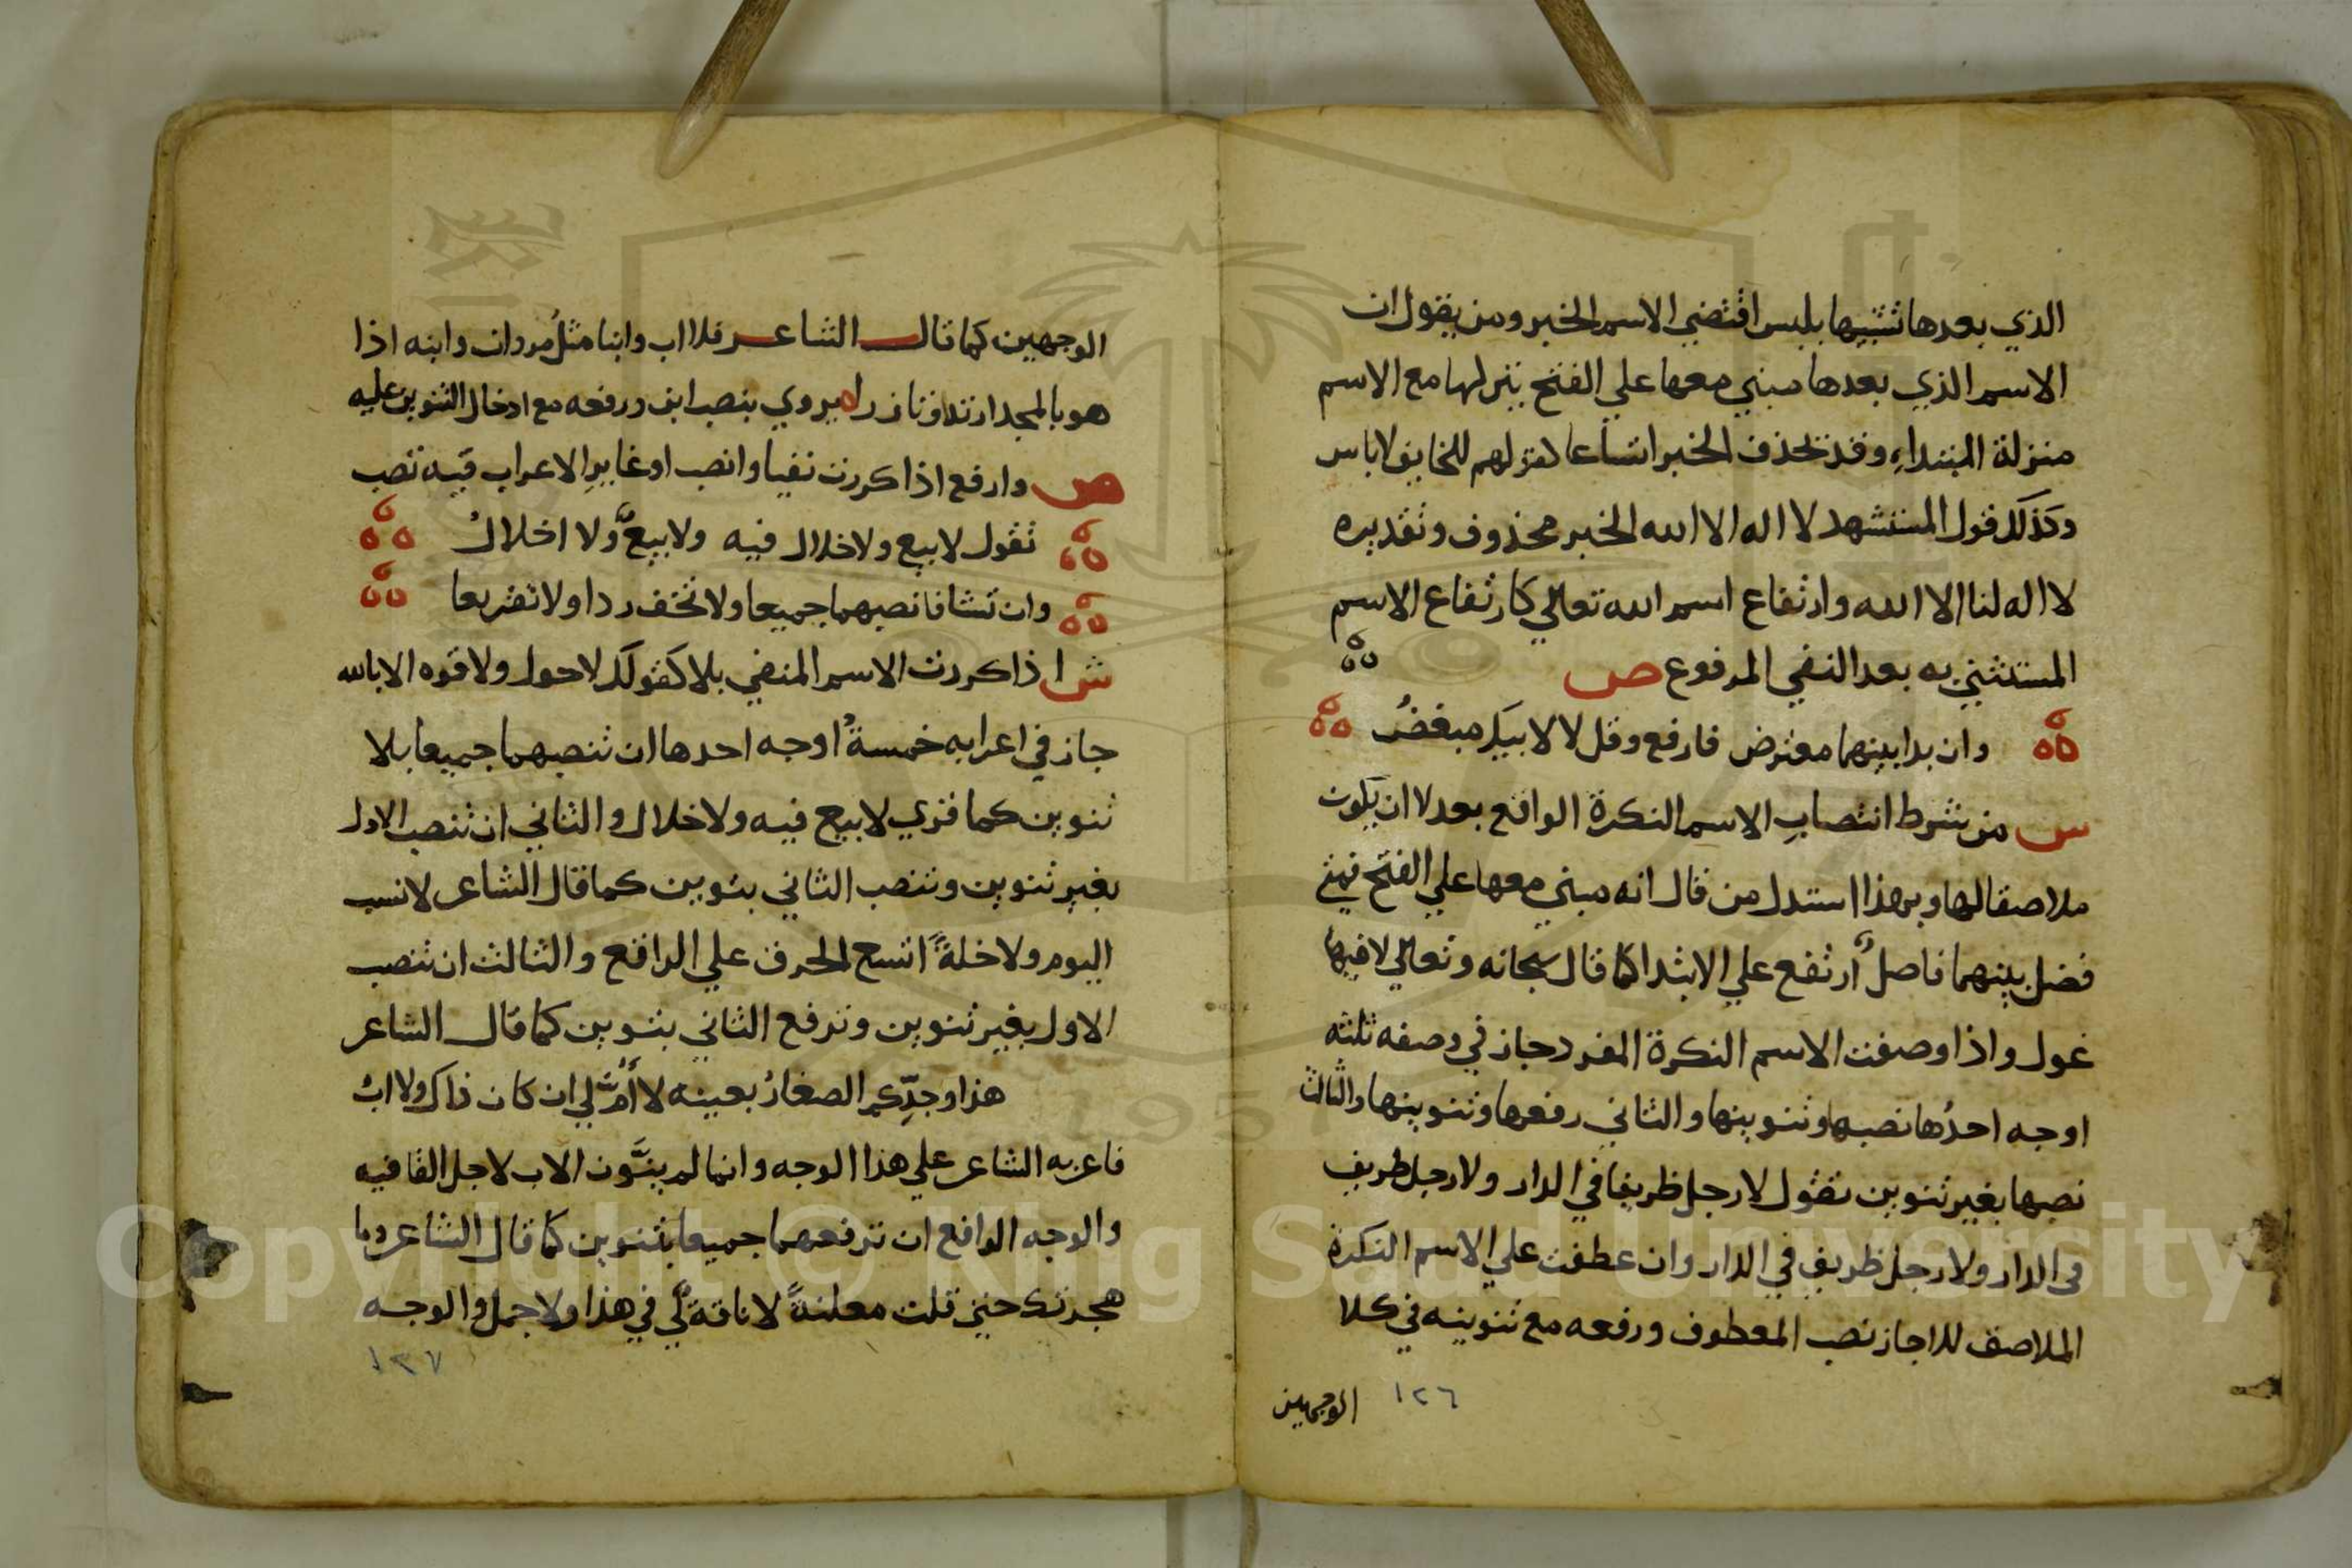 الذي بعدها تشبيها بليس اقتضي الاسم الخبر ومن يقول ان
الاسم الذي بعدها مبني معها علي الفتح ينزلها مع الاسم
منزلة المبتداء وقد تحذف الخبر اتساعا كقولهم للخايف لاباس
وكذلك قول المتشهد لا اله الا الله الخبر محذوف وتقديره
لا اله لنا الا الله وارتفاع اسم الله تعالي كارتفاع الاسم
المستثني به بعد النفي المرفوع ص
وان بدا بينهما معترض فارفع وقل لا لابيك مبغض
س من شرط انتصاب الاسم النكرة الواقع بعد لا ان يكون
ملاصقا لها وبهذا استدل من قال انه مبني معها علي الفتح فمتي
فصل بينهما فاصل ارتفع علي الابتدا كما قال سبحانه وتعالي لا فيها
غول واذا وصفت الاسم النكرة المفرد جاز في وصفه ثلثه
اوجه احدها نصبها وتنوينها والثاني رفعها وتنوينها والثالث
نصبها بغير تنوين تقول لا رجل ظريفا في الدار ولا رجل ظريف
في الدار ولا رجل ظريف في الدار وان عطفت علي الاسم النكرة
الملاصق للا جاز نصب المعطوف ورفعه مع تنوينه في كلا
١٢٦ الوجهين
الوجهين كما قال الشاعر فلا اب وابنا مثل مروان وابنه اذا
هو بالمجد ارتدا وتازرا يروي بنصب ابن ورفعه مع ادخال التنوين عليه
ص وارفع اذا كررت نفيا وانصب او غاير الاعراب فيه تصب
تقول لا بيع ولا خلال فيه ولا بيع ولا اخلال
وان تشا فانصبهما جميعا ولا تخف ردا ولا تقريعا
ش اذا كررت الاسم المنفي بلا كقولك لا حول ولا قوه الا بالله
جاز في اعرابه خمسة اوجه احدها ان تنصبهما جميعا بلا
تنوين كما قري لا بيع فيه ولا خلال والثاني ان تنصب الاول
بغير تنوين وتنصب الثاني بتنوين كما قال الشاعر لا نسب
اليوم ولا خلة اتسع الخرق علي الراقع والثالث ان تنصب
الاول بغير تنوين وترفع الثاني بتنوين كما قال الشاعر
هذا وجدكم الصغار بعينه لا أم لي ان كان ذاك ولا اب
فاعربه الشاعر علي هذا الوجه وانما لم ينون الاب لاجل القافيه
والوجه الرابع ان ترفعهما جميعا بتنوين كما قال الشاعر وما
هجرتك حتي قلت معلنة لا ناقة لي في هذا ولا جمل والوجه
١٢٧
Copyright © King Saud University
1957